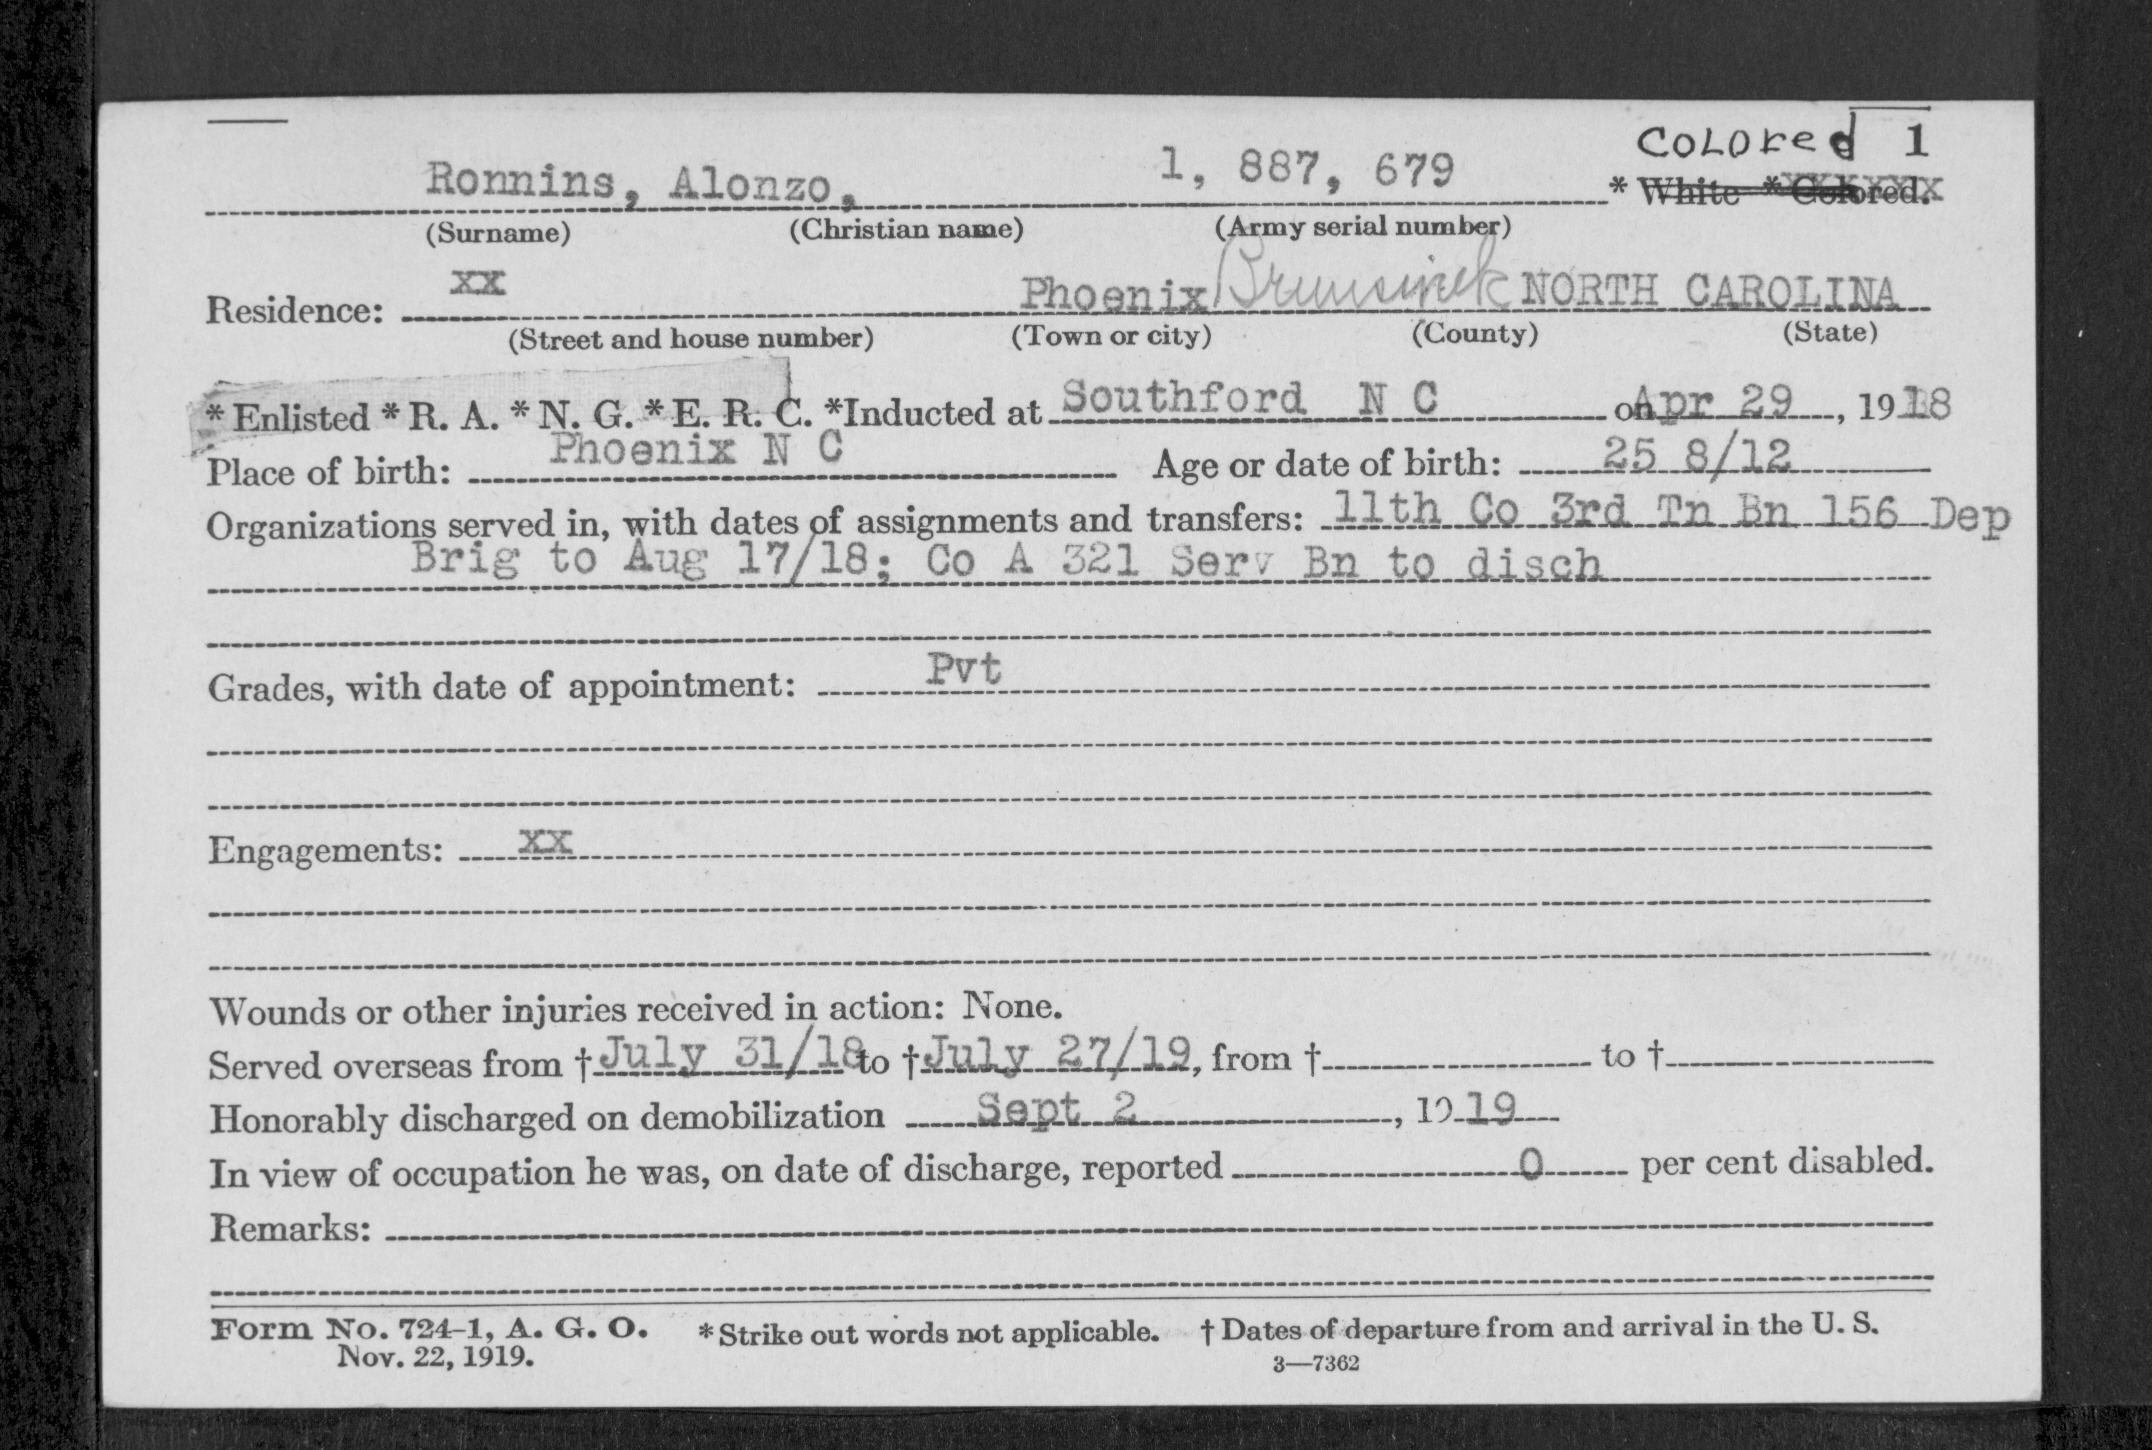 Colored 1
Ronnins, Alonzo, 1, 887, 679 * White * Colored.
(Surname) (Christian name) (Army serial number)
Residence: xx Phoenix Brunswick NORTH CAROLINA
(Street and house number) (Town or city) (County) (State)
* Enlisted * R. A. * N. G. * E. R. C. *Inducted at Southford N C on Apr 29, 1918
Place of birth: Phoenix N C Age or date of birth: 25 8/12
Organizations served in, with dates of assignments and transfers: 11th Co 3rd Tn Bn 156 Dep
Brig to Aug 17/18; Co A 321 Serv Bn to disch
Grades, with date of appointment: Pvt
Engagements: xx
Wounds or other injuries received in action: None.
Served overseas from † July 31/18 to † July 27/19, from † to †
Honorably discharged on demobilization Sept 2, 1919
In view of occupation he was, on date of discharge, reported 0 per cent disabled.
Remarks:
Form No. 724-1, A. G. O. * Strike out words not applicable. † Dates of departure from and arrival in the U. S.
Nov. 22, 1919. 3—7362